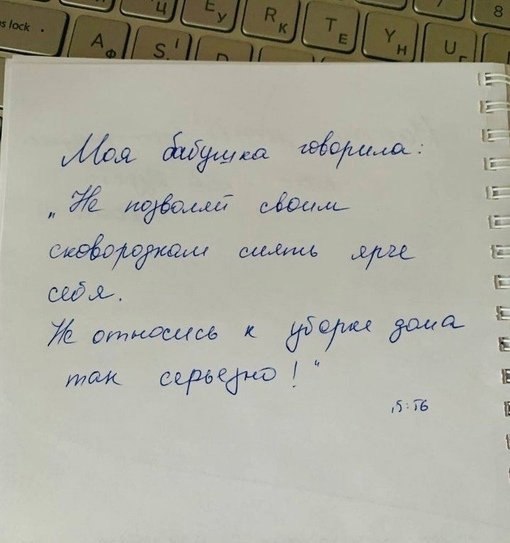 s lock
Ц
E У
R К
T Е
Y Н
U Г
7
8
A Ф
S
Моя бабушка говорила:
„Не позволяй своим
сковородкам сиять ярче
себя.
Не относись к уборке дома
так серьезно!"